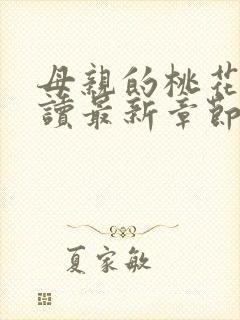 母親的桃花
讀最新章節
夏家敏